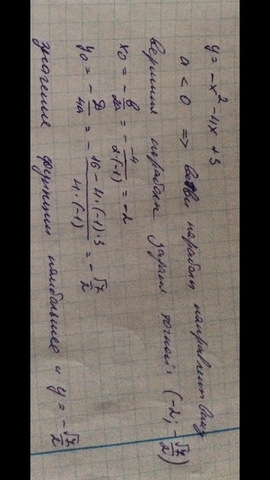 y = -x² - 4x + 3
a < 0 => ветви параболы направлены вниз
вершина параболы задана точкой: (-2; -√7/2)
x₀ = -в/2а = -(-4)/(2·(-1)) = -2
y₀ = -Д/4а = -(16 - 4·(-1)·3)/(4·(-1)) = -√7/2
значения функции наибольшее и y = -√7/2